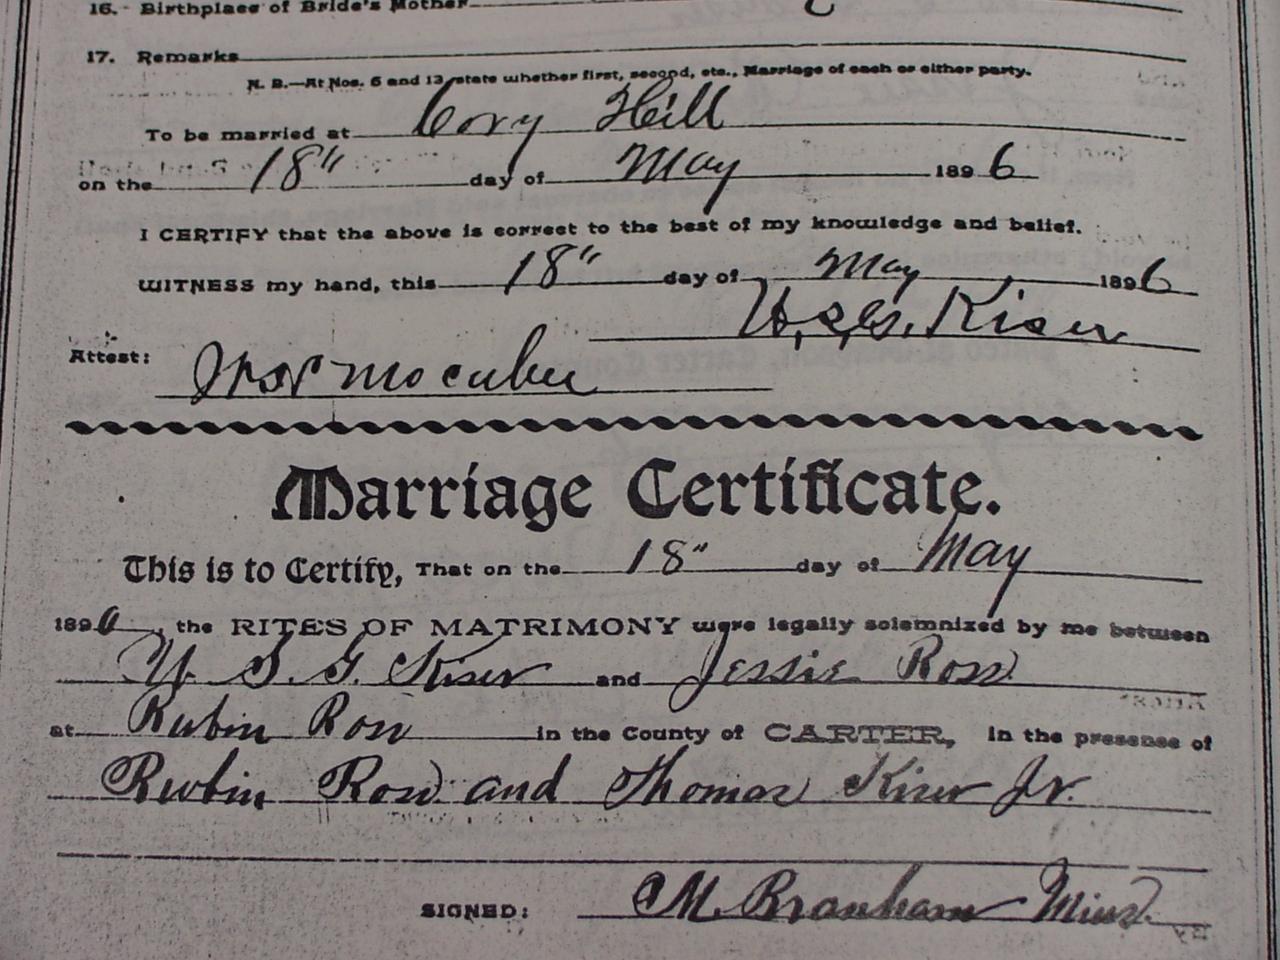 16. Birthplace of Bride's Mother
17. Remarks
N. B.—At Nos. 6 and 13 state whether first, second, etc., Marriage of each or either party.
To be married at Cory Hill
on the 18" day of May 1896
I CERTIFY that the above is correct to the best of my knowledge and belief.
WITNESS my hand, this 18" day of May 1896
U. S. G. Kiser
Attest:
Marriage Certificate.
This is to Certify, That on the 18" day of May
1896, the RITES OF MATRIMONY were legally solemnized by me between
U. S. G. Kiser and Jessie Ross
at Rubin Ross in the County of CARTER, in the presence of
Rubin Ross and Thomas Kiser Jr.
SIGNED: M. Branham Mins.